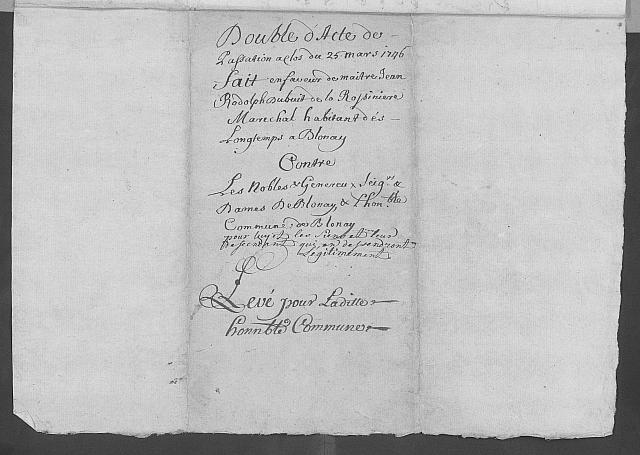 Double d'Acte de
Passation aclos du 25 mars 1746
fait enfaveur de maitre Jean
Rodolph Dubuit de la Rossiniere
Marechal habitant dès
Longtemps a Blonay
Contre
Les Nobles & Genereux Seigrs &
Dames De Blonay, & l'honble
Commune de Blonay
pour luy et les siens et leur
Descendant qui en dessendront
Légitimement
Levé pour Laditte
honnble Commune